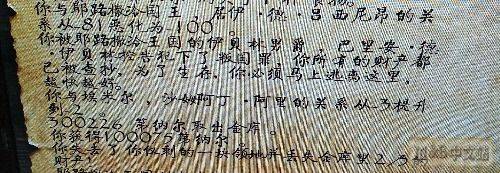 你与耶路撒冷国王，居伊·德·吕西尼昂的关
系从-81恶化为-100。
你被耶路撒冷王国的伊贝林男爵，巴里安·德
·伊贝林控告犯下了叛国罪，你所有的财产都
已被查抄，为了生存，你必须马上逃离这里，
越快越好。
你与埃米尔，沙姆阿丁·阿里的关系从-3提升
到
300226第纳尔取出金库。
你获得100075第纳尔。
你失去了你仅剩的一块领地并丢失金库里2
财产！